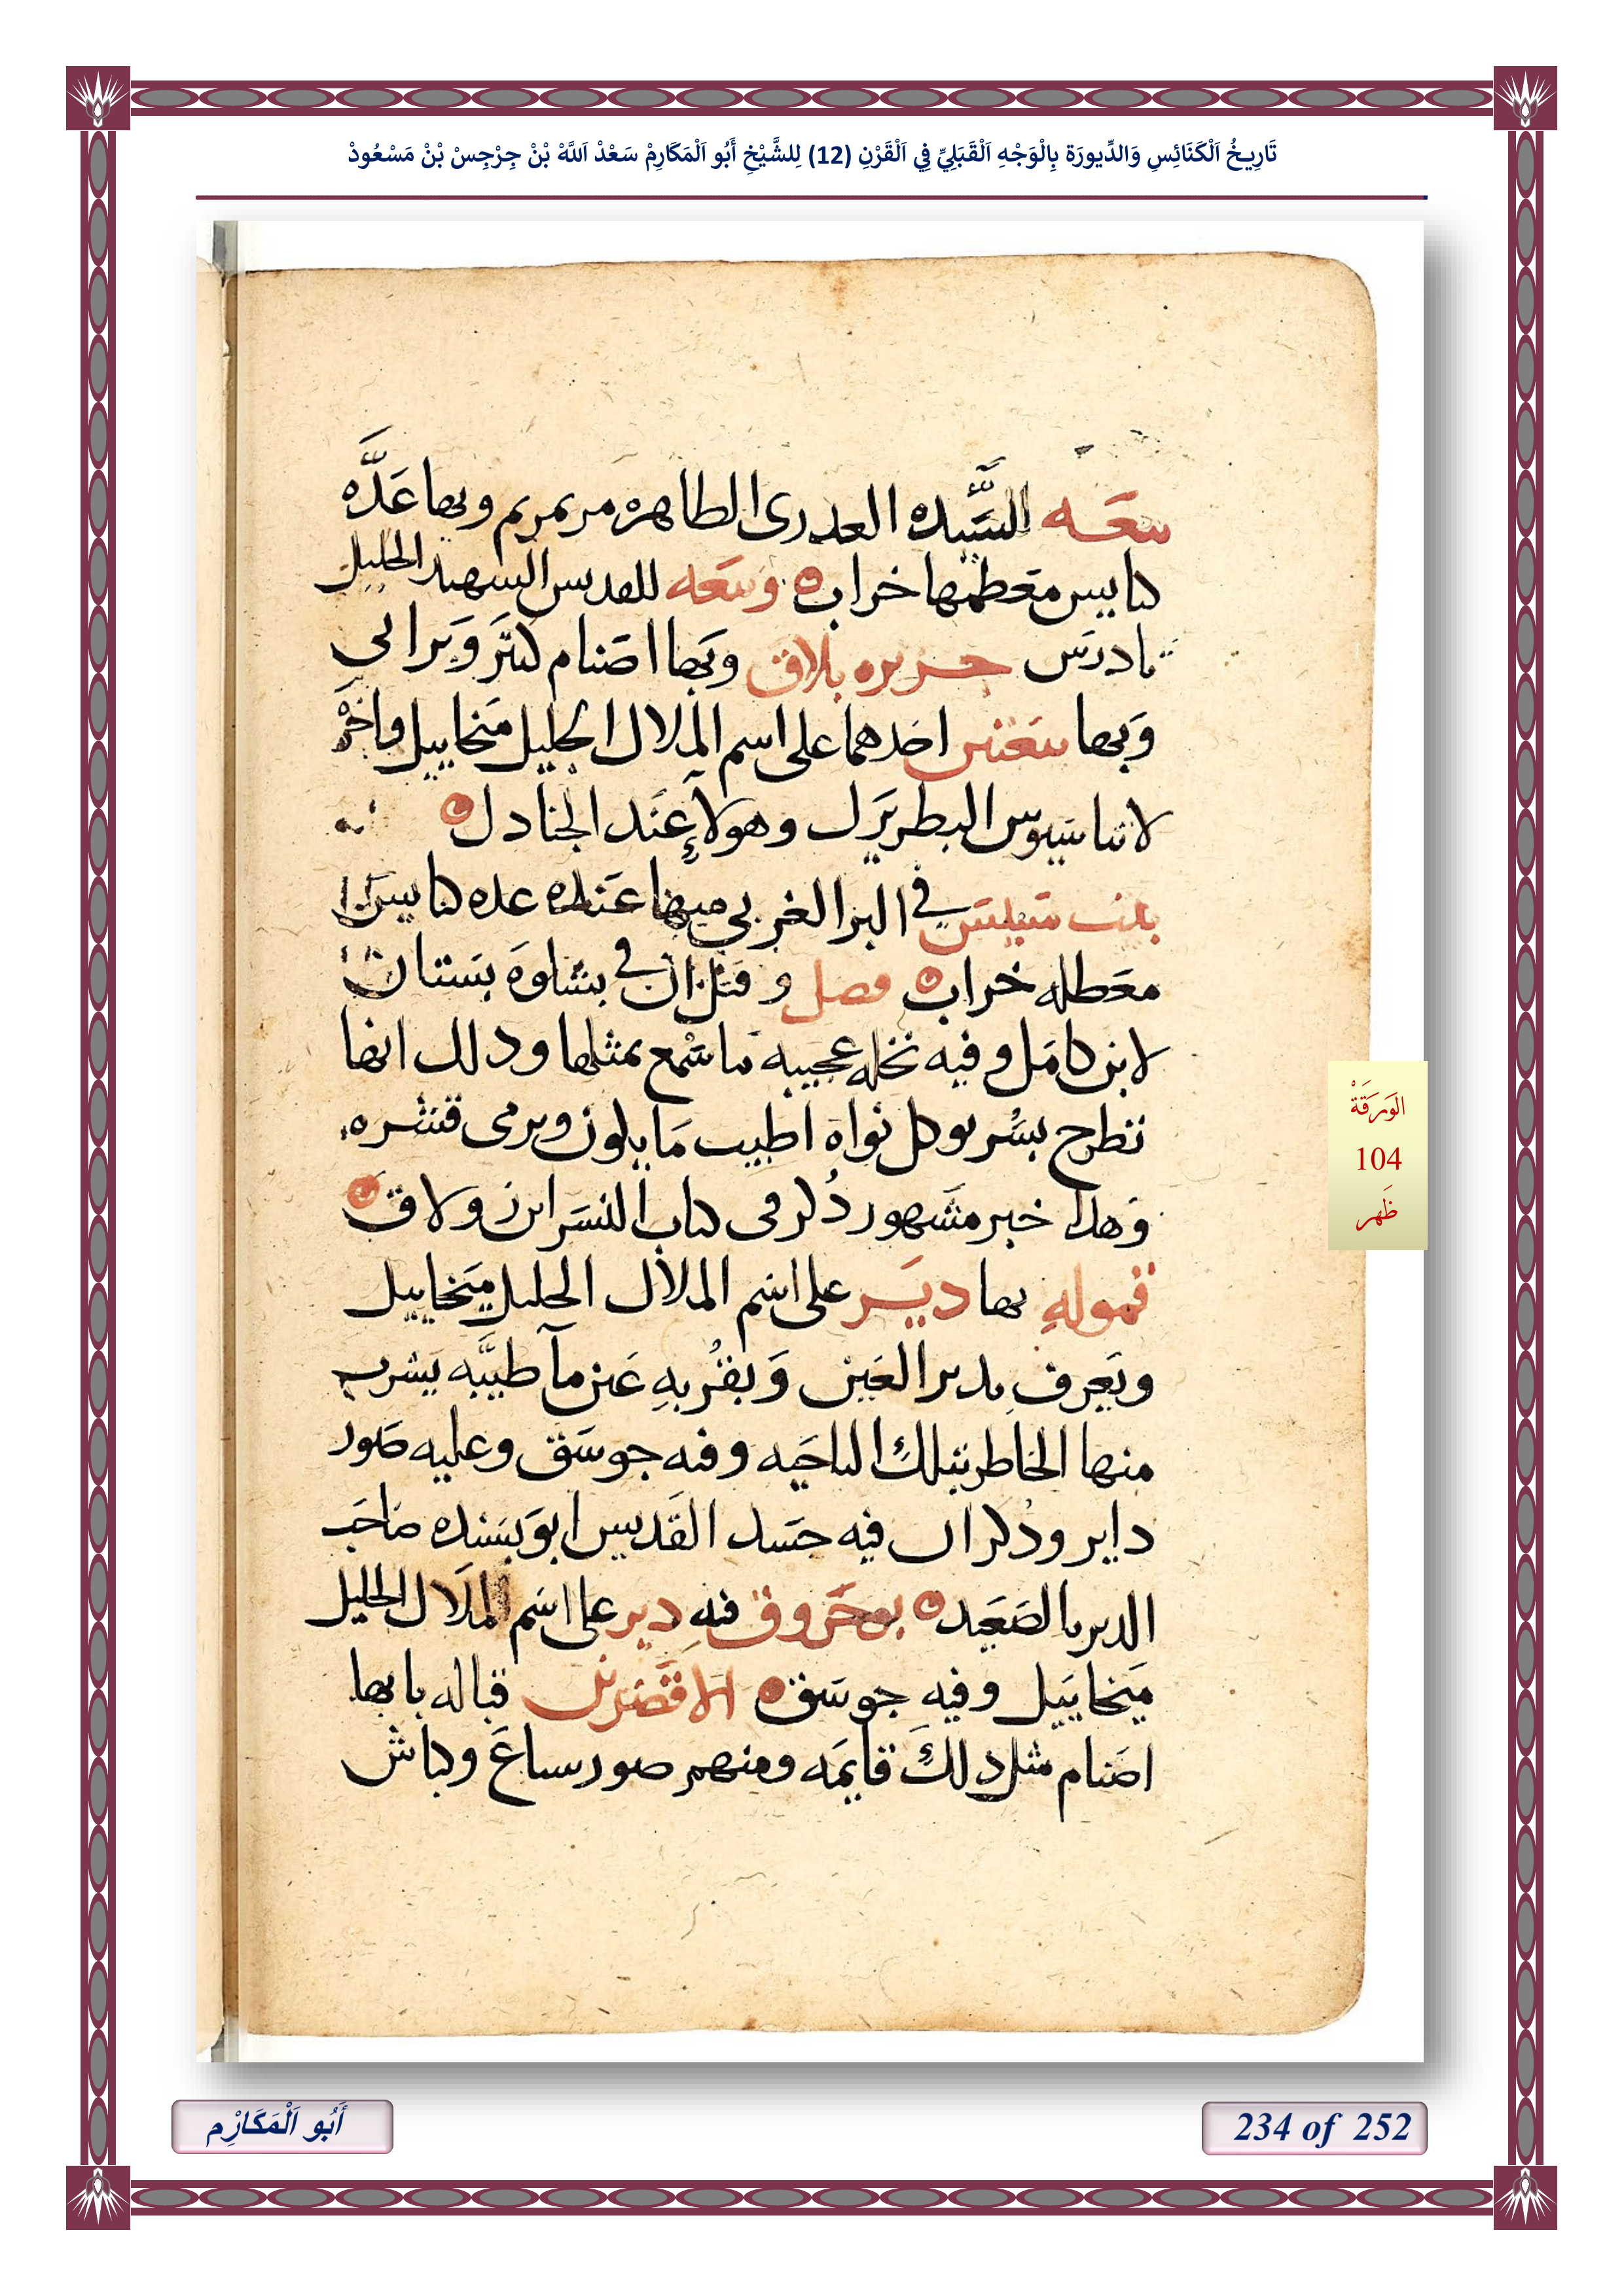 تَارِيخُ اَلْكَنَائِسِ وَالدِّيورَة بِالْوَجْهِ اَلْقَبَلِيِّ فِي اَلْقَرْنِ (12) لِلشَّيْخِ أَبُو اَلْمَكَارِمْ سَعْدْ اَللَّهْ بْنْ جِرْجِسْ بْنْ مَسْعُودْ
بيعَه السَّيده العدرى الطاهره مرتمريم وبها عَدَّه
كنايس معَظمها خراب وبيعَه للقديس الشهيد الجليل
تادرس جزيره بلاق وبَها اصَنام كتَر وَبرابي
وَبها بيعَتين احَدهما على اسم الملاك الجليل ميَخاييل واخَرْ
لاتناسَيوس البطريَرك وهولآء عَند الجنادل
في البر الغربي منها عَنده عده كنايسَ
معَطله خراب فصل و قيَل ان في بشاوَه بسَتان
لابن كامَل وفيه نخله عجيبه ما سَمْع بمثلها ودلك انها
تطرح بسْر بوكل نواه اطيب مَا يكون ويرمى قشره
وَهدا خبر مشَهور دُكر في كتاب النسَر ابرز ولاق
قموله بها ديَر على اسَم الملاك الجليل ميَخاييل
ويعَرف بدير العَين وَبقُربهِ عَين مآ طيبَّه يَشرب
منها الخاطر بتلك الناحَيه وفيه جوسَق وعليه صَور
داير ودُكر ان فيه جسَد القَديس ابو بسَنده صاحَب
الدير بالصَعَيد فيهِ دير على اسَم الملَاك الجليل
ميَخاييَل وفيه جوسَق الاقصَرين قباله بابها
اصَنام مثل دلكَ قايمَه ومنهم صور سباعَ وكباش
الوَرَقَةْ
104
ظَهر
أَبُو اَلْمَكَارْم
234 of 252